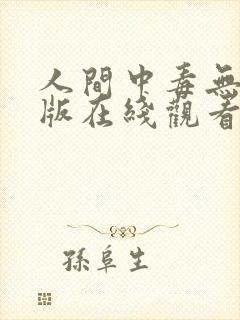 人間中毒無
版在綫觀看
孫阜生